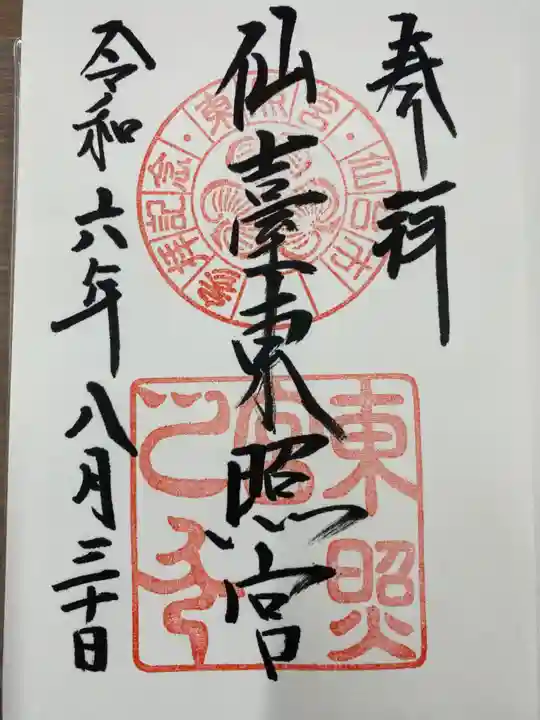 奉拝
仙臺東照宮
令和六年八月三十日
東照宮・仙台市
参拝記念
東照
宮
之印